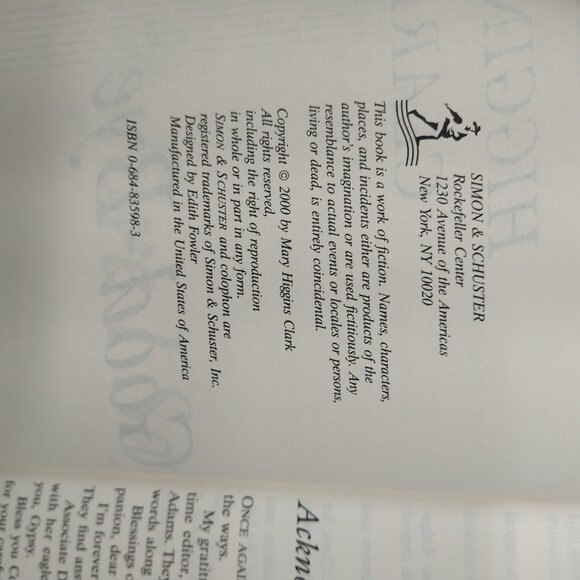 SIMON & SCHUSTER
Rockefeller Center
1230 Avenue of the Americas
New York, NY 10020
This book is a work of fiction. Names, characters,
places, and incidents either are products of the
author's imagination or are used fictitiously. Any
resemblance to actual events or locales or persons,
living or dead, is entirely coincidental.
Copyright © 2000 by Mary Higgins Clark
All rights reserved,
including the right of reproduction
in whole or in part in any form.
SIMON & SCHUSTER and colophon are
registered trademarks of Simon & Schuster, Inc.
Designed by Edith Fowler
Manufactured in the United States of America
ISBN 0-684-83598-3
ONCE
the ways.
My
time editor,
Adams. They
words along
Blessings
panion, dear
I'm forever
They find
Associate
with her eagle
you, Gypsy.
Bless you
for your